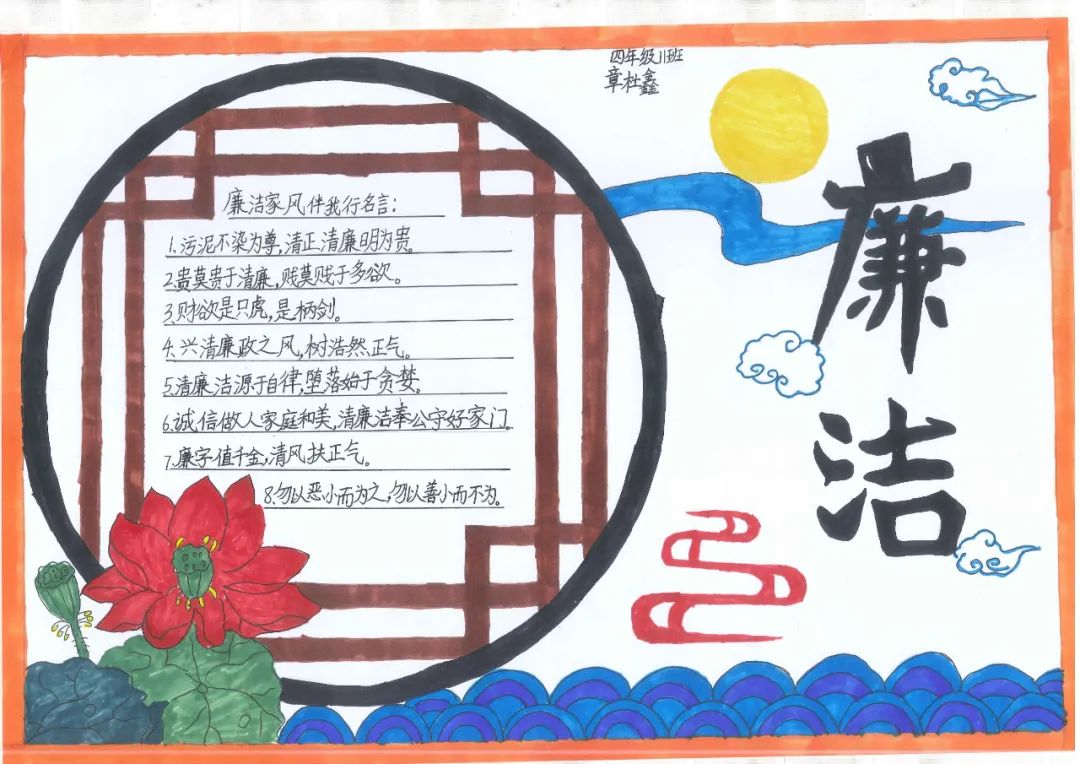 四年级11班
章杜鑫
廉洁
廉洁家风伴我行名言:
1.污泥不染为尊,清正清廉明为贵。
2.贵莫贵于清廉,贱莫贱于多欲。
3.财欲是只虎,是柄剑。
4.兴清廉政之风,树浩然正气。
5.清廉洁源于自律,堕落始于贪婪。
6.诚信做人家庭和美,清廉洁奉公守好家门。
7.廉字值千金,清风扶正气。
8.勿以恶小而为之,勿以善小而不为。